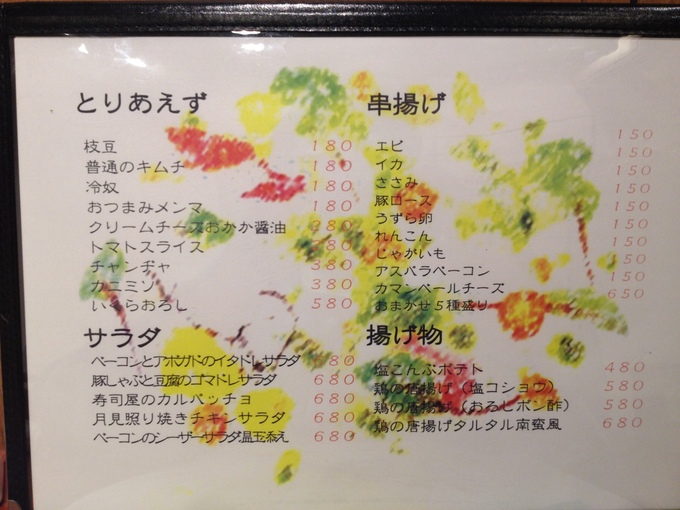 とりあえず
枝豆 180
普通のキムチ 180
冷奴 180
おつまみメンマ 180
クリームチーズおかか醤油 280
トマトスライス 380
チャンヂャ 380
カニミソ 380
いくらおろし 580
サラダ
ベーコンとアボガドのイタドレサラダ 680
豚しゃぶと豆腐のゴマドレサラダ 680
寿司屋のカルパッチョ 680
月見照り焼きチキンサラダ 680
ベーコンのシーザーサラダ温玉添え 680
串揚げ
エビ 150
イカ 150
ささみ 150
豚ロース 150
うずら卵 150
れんこん 150
じゃがいも 150
アスパラベーコン 150
カマンベールチーズ 150
おまかせ5種盛り 650
揚げ物
塩こんぶポテト 480
鶏の唐揚げ(塩コショウ) 580
鶏の唐揚げ(おろしポン酢) 580
鶏の唐揚げタルタル南蛮風 680